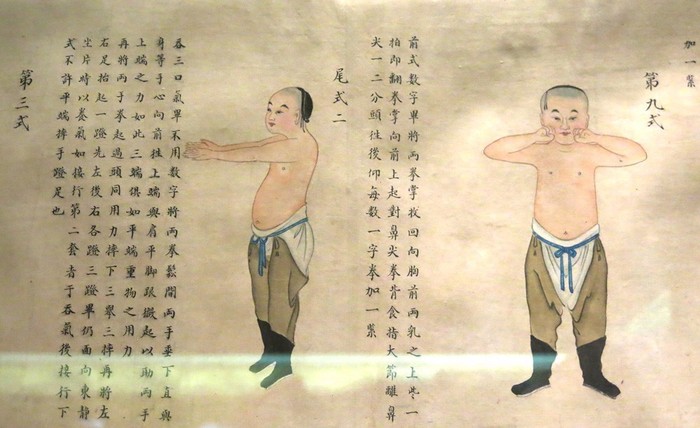 加一緊
第九式
前式数字畢將两拳掌收回向胸前两乳之上些一
拍即翻拳掌向前上起對鼻尖拳背食指大節離鼻
尖一二分頭往後仰每数一字拳加一緊
尾式二
吞三口氣畢不用数字將两拳鬆開两手垂下直與
身等于心向前往上端與肩平脚跟微起以助两手
上端之力如此三端俱如平端重物之用力
再將两手拳起過頭同用力摔下三舉三摔再將左
右足抬起一蹬先左後右各蹬三蹬畢仍面向東靜
坐片時以養氣如接行第二套者于吞氣後接行下
式不許平端摔手蹬足也
第三式